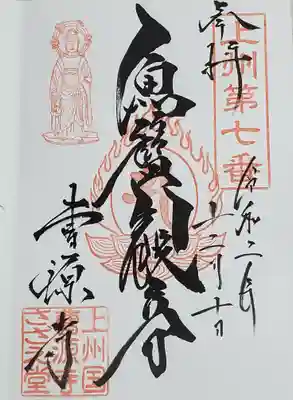 奉拝
上州第七番
令和二年
十二月十日
魚籃観音
曹源寺
上州国
曹源寺
さゞえ堂